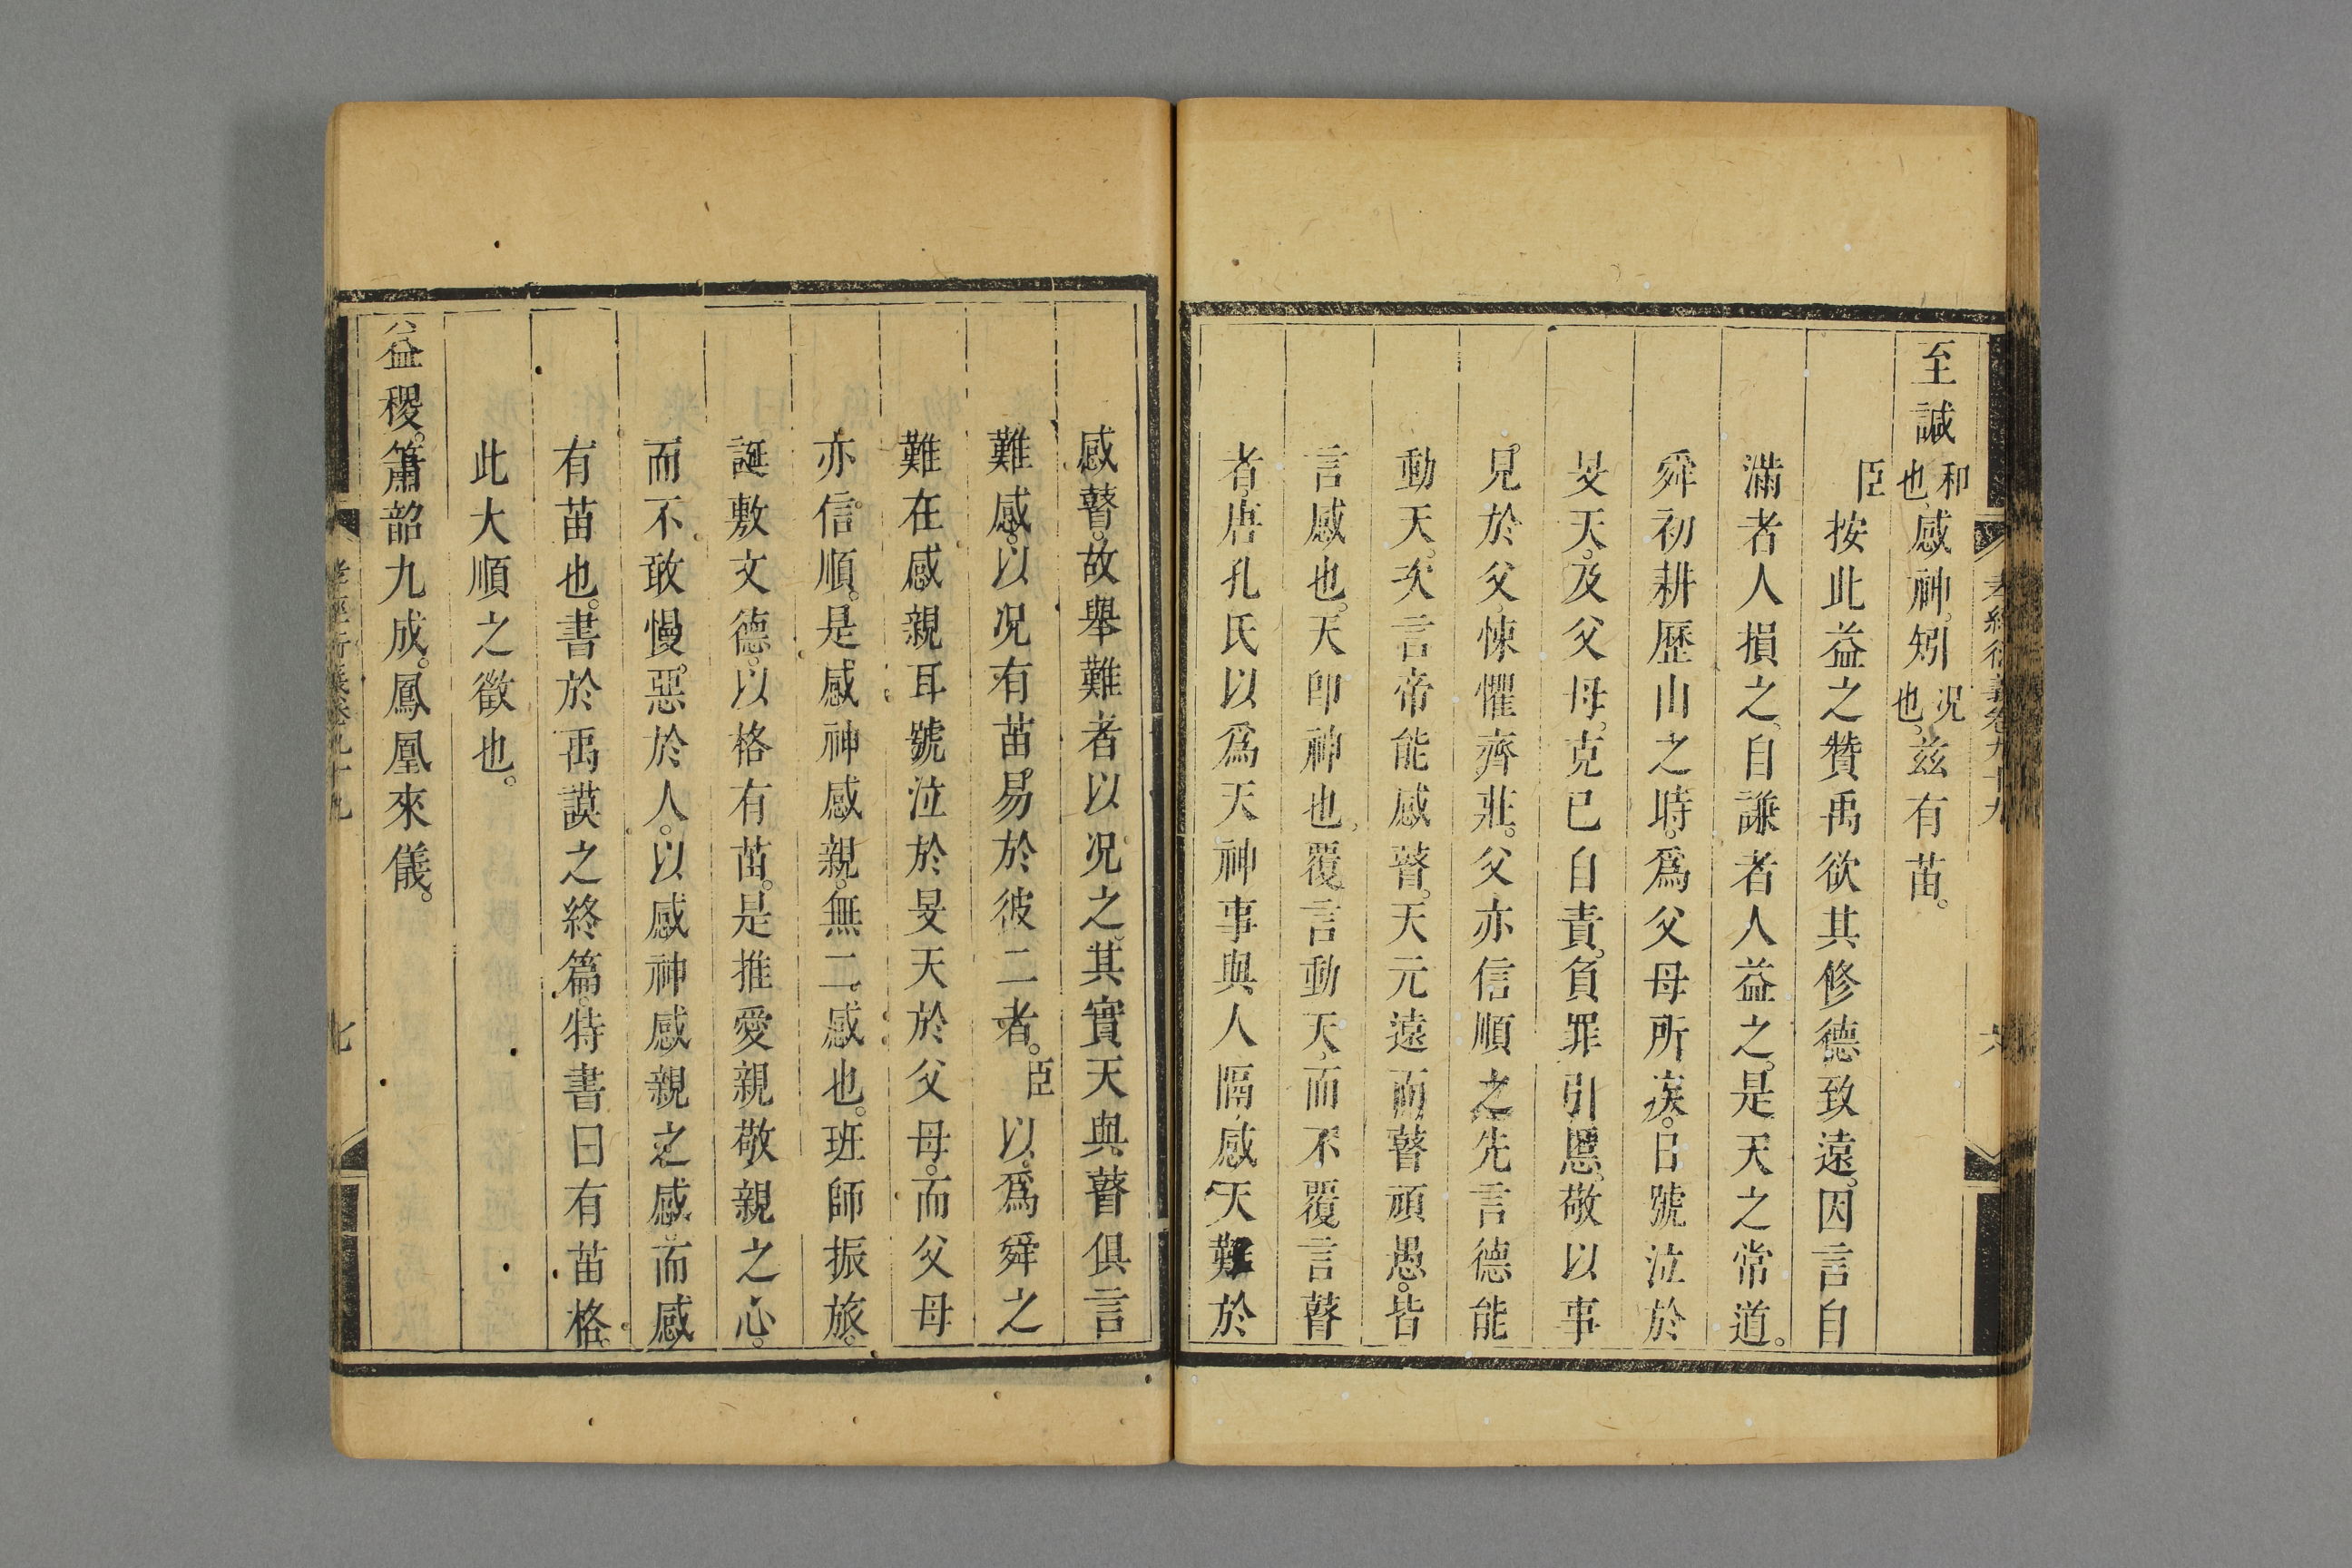 至諴和也感神。矧况也。兹有苗。
臣按此益之贊禹欲其修德致遠。因言自
滿者人損之。自謙者人益之。是天之常道。
舜初耕歷山之時。爲父母所疾。日號泣於
旻天。及父母。克己自責。負罪引慝。敬以事
見於父。悚懼齊莊。父亦信順之先言德能
動天。次言帝能感瞽。天元遠而瞽頑愚。皆
言感也。天卽神也。覆言動天。而不覆言瞽
者。唐孔氏以爲天神事與人隔感天難於
感瞽。故舉難者以况之。其實天與瞽俱言
難感。以况有苗易於彼二者。臣以爲舜之
難在感親耳號泣於旻天於父母。而父母
亦信順。是感神感親。無二感也。班師振旅。
誕敷文德。以格有苗。是推愛親敬親之心。
而不敢慢惡於人。以感神感親之感而感
有苗也。書於禹謨之終篇。特書曰有苗格。
此大順之徵也。
益稷。簫韶九成。鳳凰來儀。
孝經衍義卷九十九